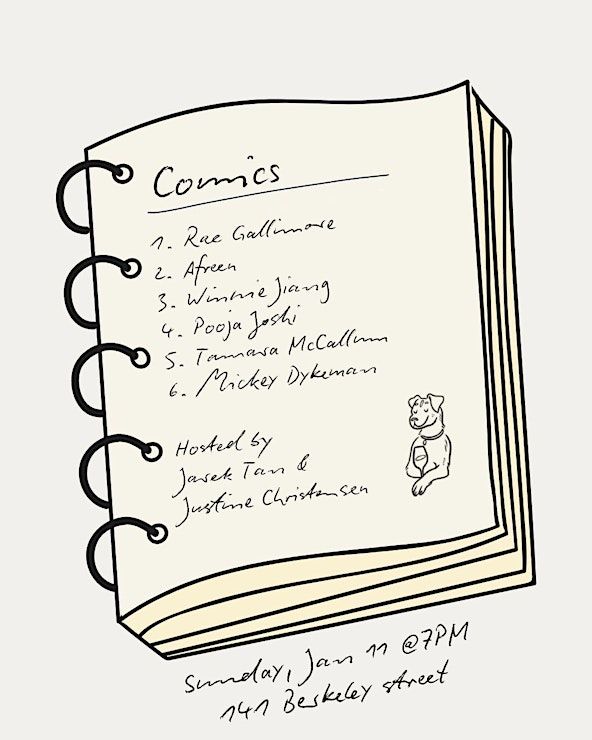 Comics
1. Rae Gallimore
2. Afreen
3. Winnie Jiang
4. Pooja Joshi
5. Tamara McCallum
6. Mickey Dykeman
Hosted by
Jarek Tan &
Justine Christensen
Sunday, Jan 11 @7PM
141 Berkeley street